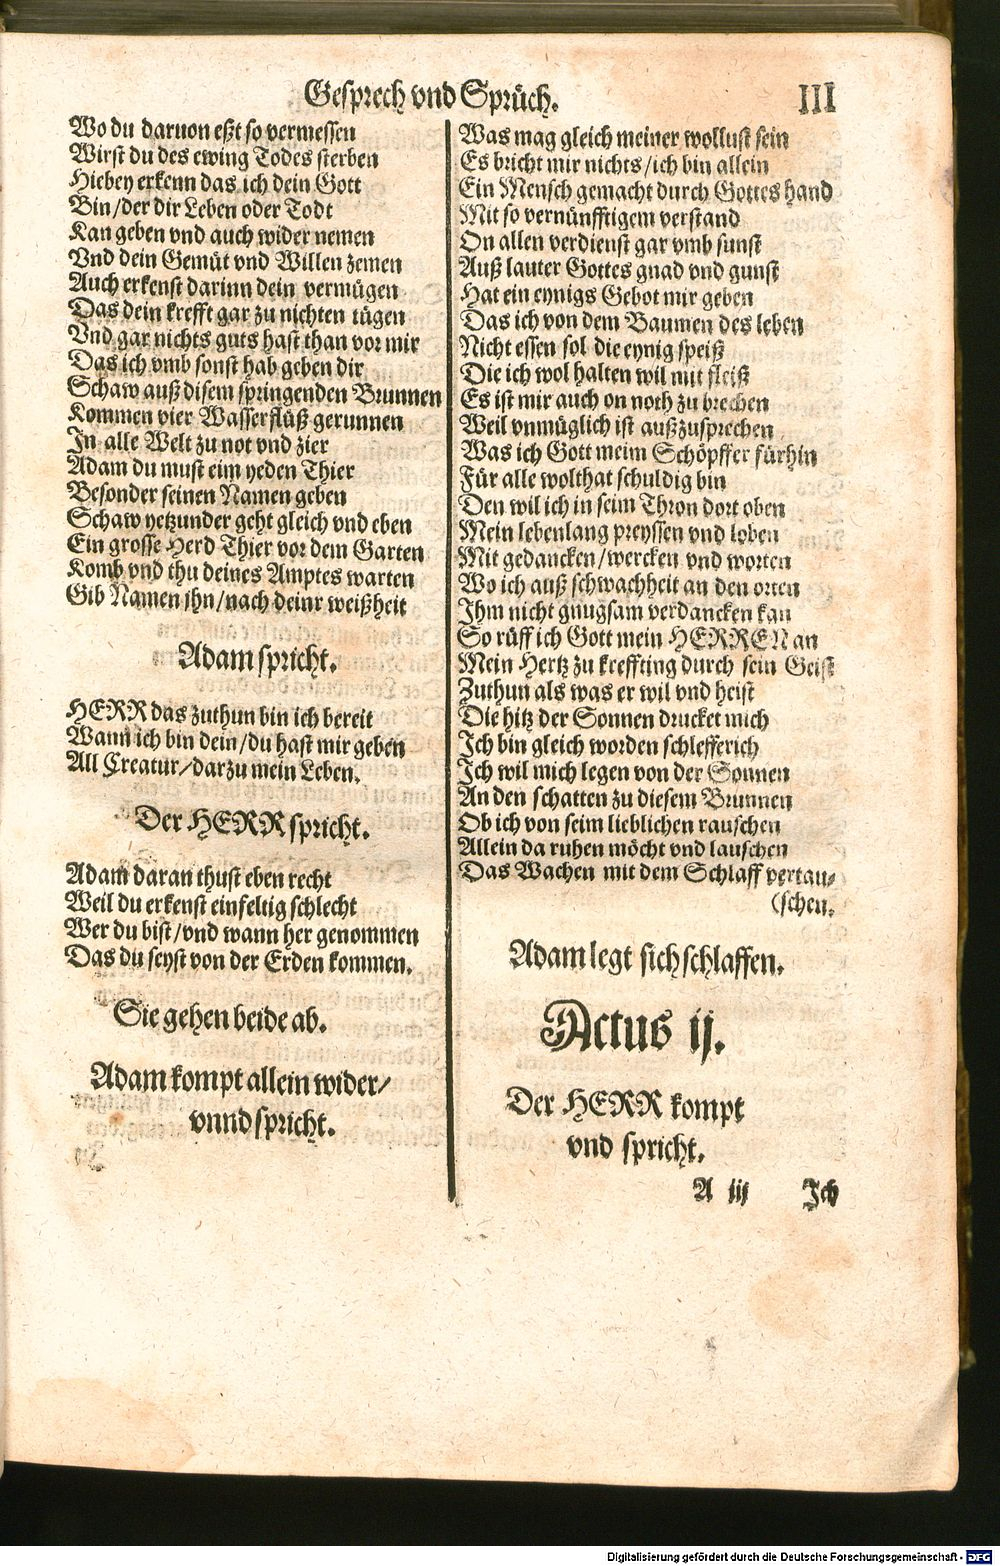 Gesprech vnd Sprüch.
III
Wo du daruon eßt so vermessen
Wirst du des ewing Todes sterben
Hiebey erkenn das ich dein Gott
Bin/der dir Leben oder Todt
Kan geben vnd auch wider nemen
Vnd dein Gemüt vnd Willen zemen
Auch erkenst darinn dein vermügen
Das dein krefft gar zu nichten tügen
Vnd gar nichts guts hast than vor mir
Das ich vmb sonst hab geben dir
Schaw auß disem springenden Brunnen
Kommen vier Wasserflüß gerunnen
In alle Welt zu not vnd zier
Adam du must eim yeden Thier
Besonder seinen Namen geben
Schaw yetzunder geht gleich vnd eben
Ein grosse Herd Thier vor dem Garten
Komb vnd thu deines Amptes warten
Gib Namen jhn/nach deinr weißheit
Adam spricht.
HERR das zuthun bin ich bereit
Wann ich bin dein/du hast mir geben
All Creatur/darzu mein Leben.
Der HERR spricht.
Adam daran thust eben recht
Weil du erkenst einfeltig schlecht
Wer du bist/vnd wann her genommen
Das du seyst von der Erden kommen.
Sie gehen beide ab.
Adam kompt allein wider/
vnnd spricht.
Was mag gleich meiner wollust sein
Es bricht mir nichts/ich bin allein
Ein Mensch gemacht durch Gottes hand
Mit so vernünfftigem verstand
On allen verdienst gar vmb sunst
Auß lauter Gottes gnad vnd gunst
Hat ein eynigs Gebot mir geben
Das ich von dem Baumen des leben
Nicht essen sol die eynig speiß
Die ich wol halten wil mit fleiß
Es ist mir auch on noth zu brechen
Weil vnmüglich ist außzusprechen
Was ich Gott meim Schöpffer fürhin
Für alle wolthat schuldig bin
Den wil ich in seim Thron dort oben
Mein lebenlang preyssen vnd loben
Mit gedancken/wercken vnd worten
Wo ich auß schwachheit an den orten
Ihm nicht gnugsam verdancken kan
So rüff ich Gott mein HERREN an
Mein Hertz zu kreffting durch sein Geist
Zuthun als was er wil vnd heist
Die hitz der Sonnen drucket mich
Ich bin gleich worden schlefferich
Ich wil mich legen von der Sonnen
An den schatten zu diesem Brunnen
Ob ich von seim lieblichen rauschen
Allein da ruhen möcht vnd lauschen
Das Wachen mit dem Schlaff vertau⸗
(schen.
Adam legt sich schlaffen.
Actus ij.
Der HERR kompt
vnd spricht.
A iij Ich
Digitalisierung gefördert durch die Deutsche Forschungsgemeinschaft - DFG